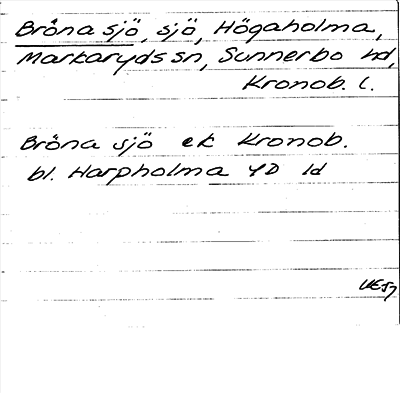 Bråna sjö, sjö, Högaholma,
Markaryds sn, Sunnerbo hd,
Kronob. l.
Bråna sjö ek Kronob.
bl. Harpholma 4D 1d